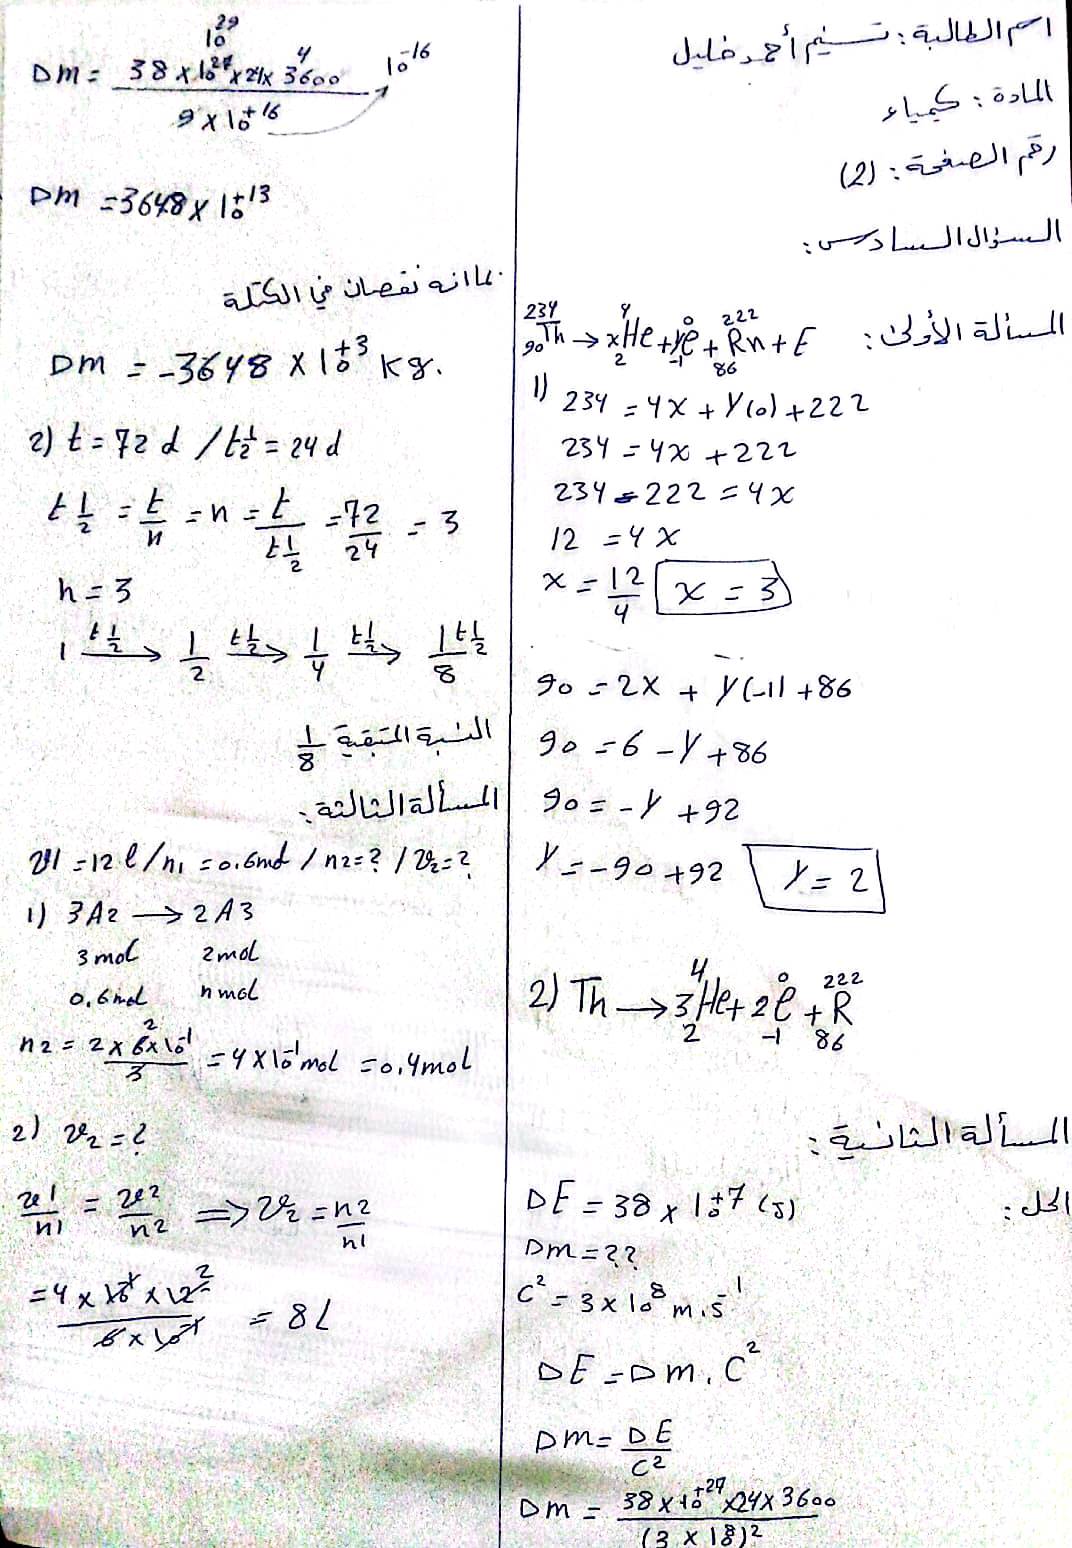 اسم الطالبة: تسنيم أحمد خليل
المادة: كيمياء
رقم الصفحة: (2)
السؤال السادس:
المسألة الأولى: ²³⁴₉₀Th → x⁴₂He + y⁰₋₁e + ²²²₈₆Rn + E
1) 234 = 4x + y(0) + 222
234 = 4x + 222
234 - 222 = 4x
12 = 4x
x = 12/4 x = 3
90 = 2x + y(-1) + 86
90 = 6 - y + 86
90 = -y + 92
y = -90 + 92 y = 2
2) Th → 3⁴₂He + 2⁰₋₁e + ²²²₈₆R
المسألة الثانية:
الحل: DE = 38 × 10⁺⁷ (J)
Dm = ??
C² = 3 × 10⁸ m.s⁻¹
DE = Dm . C²
Dm = DE/C²
Dm = 38 × 10⁺²⁷ × 24 × 3600 / (3 × 10⁸)²
10²⁹
Dm = 38 × 10²⁷ × 24 × 3600⁴ / 9 × 10⁺¹⁶ 10⁻¹⁶
Dm = 3648 × 10⁺¹³
بما انه نقصان في الكتلة
Dm = -3648 × 10⁺³ kg.
2) t = 72 d / t½ = 24 d
t½ = t/n = n = t/t½ = 72/24 = 3
n = 3
1 →t½ 1/2 →t½ 1/4 →t½ 1/8 t½
النسبة المتبقية 1/8
المسألة الثالثة:
v1 = 12 l / n1 = 0.6mol / n2 = ? / v2 = ?
1) 3A2 → 2A3
3 mol 2mol
0.6mol n mol
n2 = 2 × 6² × 10⁻¹ / 3 = 4 × 10⁻¹ mol = 0.4mol
2) v2 = ?
v1/n1 = v2/n2 ⇒ v2 = n2/n1
= 4 × 10⁻¹ × 12² / 6 × 10⁻¹ = 8L